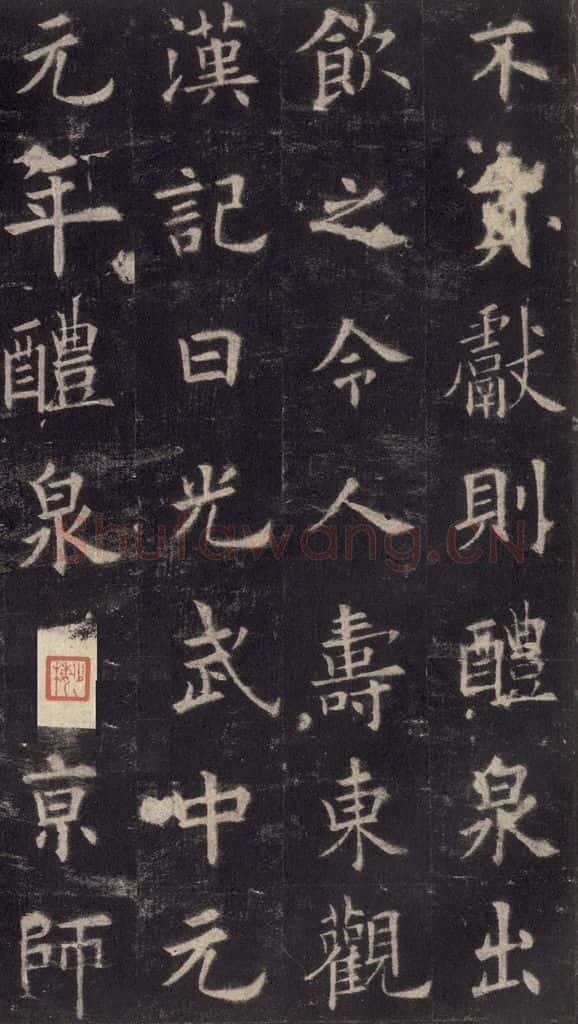 不貢獻則醴泉出
飲之令人壽東觀
漢記曰光武中元
元年醴泉亰師
shufawang.CN